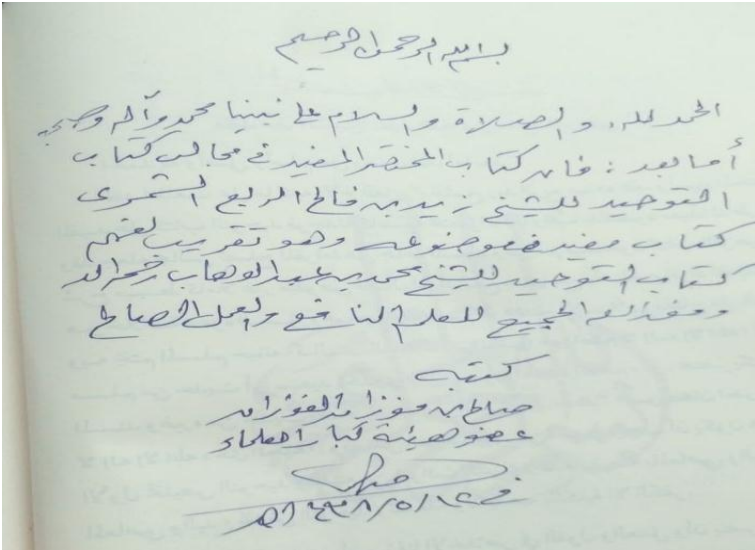 بسم الله الرحمن الرحيم
الحمد لله، والصلاة والسلام على نبينا محمد وآله وصحبه
أما بعد: فإن كتاب المختصر المفيد في مجالس كتاب
التوحيد للشيخ زيد بن فالح الربع الشمري
كتاب مفيد في موضوعه وهو تقريب لفهم
كتاب التوحيد للشيخ محمد بن عبد الوهاب رحمه الله
وفق الله الجميع للعلم النافع والعمل الصالح
كتبه
صالح بن فوزان الفوزان
عضو هيئة كبار العلماء
في ١٤٣٨/٥/١٢هـ